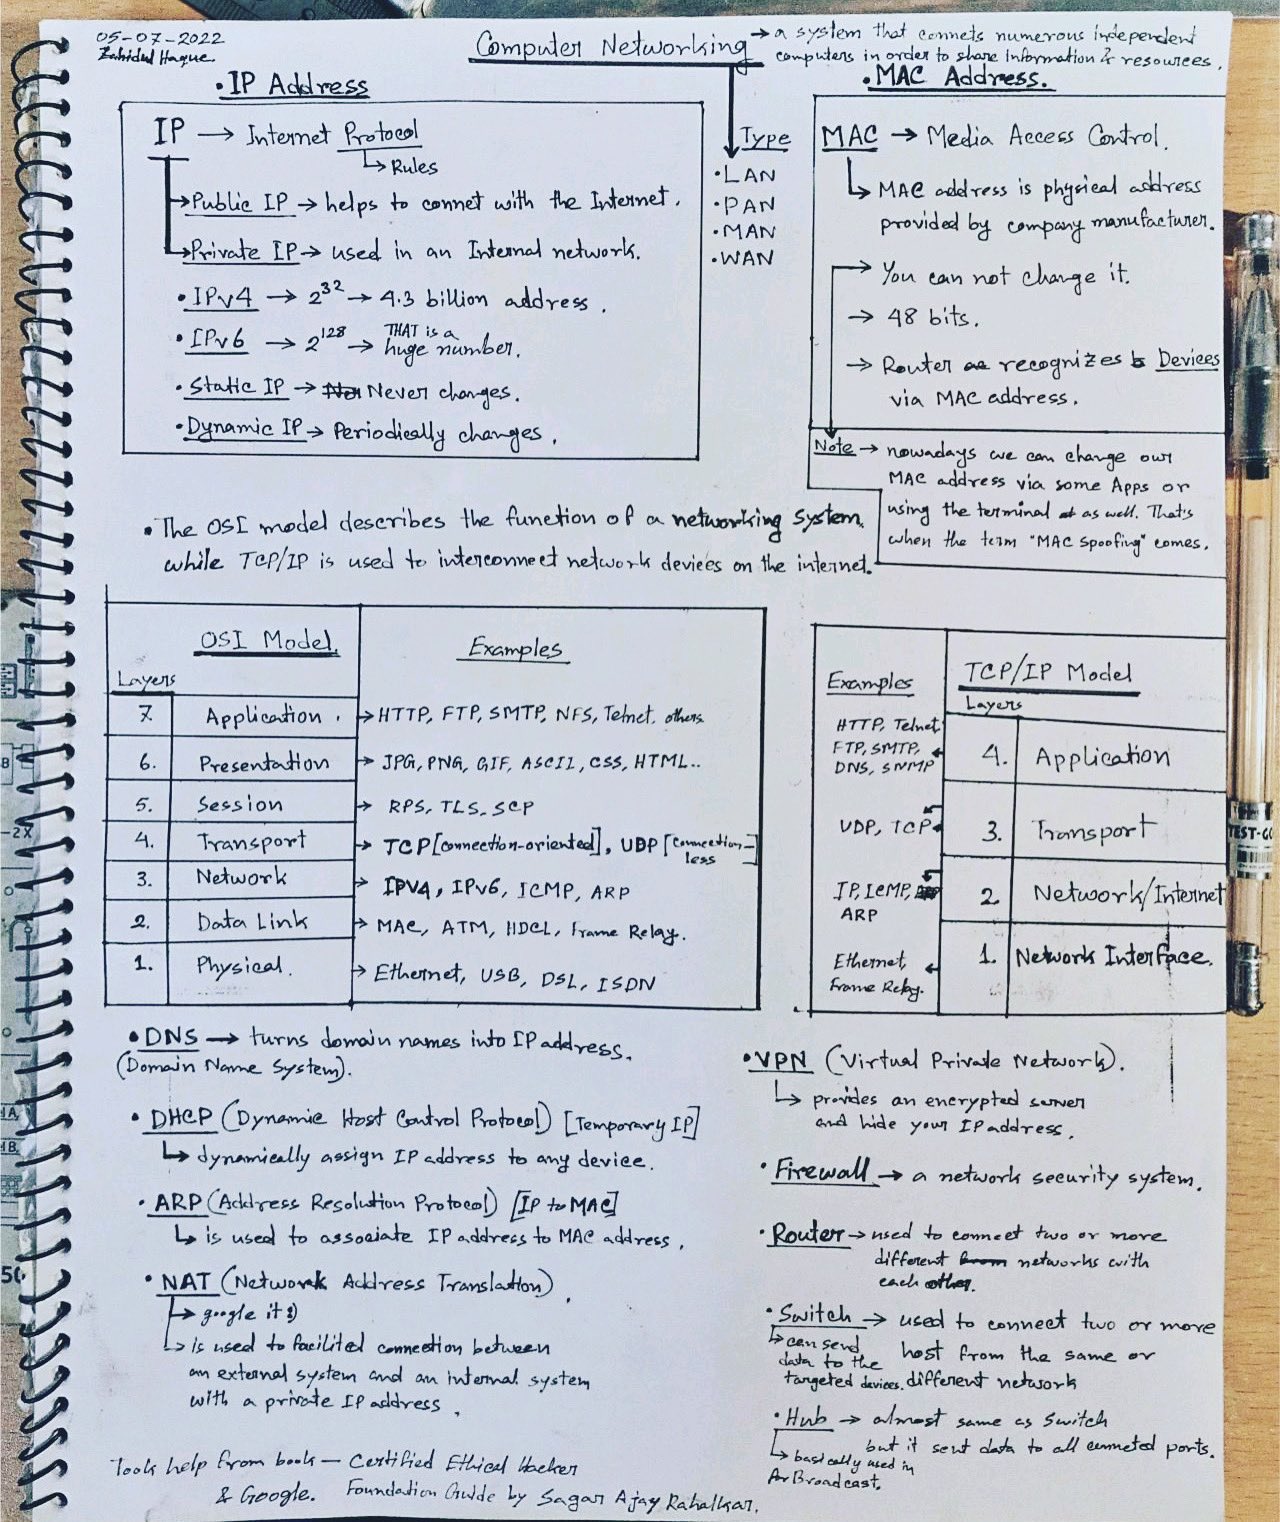 05-07-2022
Zahidul Haque
Computer Networking → a system that connets numerous independent
computers in order to share information & resources.
• IP Address
IP → Internet Protocol
↳ Rules
→ Public IP → helps to connet with the Internet.
→ Private IP → used in an Internal network.
• IPv4 → 2^32 → 4.3 billion address.
• IPv6 → 2^128 → THAT is a
huge number.
• Static IP → Never changes.
• Dynamic IP → Periodically changes.
Type
• LAN
• PAN
• MAN
• WAN
• MAC Address.
MAC → Media Access Control.
↳ MAC address is physical address
provided by company manufacturer.
→ You can not change it.
→ 48 bits.
→ Router recognizes Devices
via MAC address.
Note → nowadays we can change our
MAC address via some Apps or
using the terminal as well. That's
when the term "MAC spoofing" comes.
• The OSI model describes the function of a networking system.
while TCP/IP is used to interconnect network devices on the internet.
OSI Model. Examples
Layers
7. Application. → HTTP, FTP, SMTP, NFS, Telnet. others
6. Presentation → JPG, PNG, GIF, ASCII, CSS, HTML..
5. Session → RPS, TLS, SCP
4. Transport → TCP [connection-oriented], UDP [connection-
less]
3. Network → IPV4, IPv6, ICMP, ARP
2. Data Link → MAC, ATM, HDCL, Frame Relay.
1. Physical. → Ethernet, USB, DSL, ISDN
Examples TCP/IP Model
Layers
HTTP, Telnet
FTP, SMTP,
DNS, SNMP
4. Application
UDP, TCP 3. Transport
IP, ICMP,
ARP
2. Network/Internet
Ethernet,
Frame Relay.
1. Network Interface.
• DNS → turns domain names into IP address.
(Domain Name System).
• DHCP (Dynamic Host Control Protocol) [Temporary IP]
↳ dynamically assign IP address to any device.
• ARP (Address Resolution Protocol) [IP to MAC]
↳ is used to associate IP address to MAC address.
• NAT (Network Address Translation).
→ google it :)
↳ is used to facilited connection between
an external system and an internal system
with a private IP address.
• VPN (Virtual Private Network).
↳ provides an encrypted server
and hide your IP address.
• Firewall → a network security system.
• Router → used to connect two or more
different networks with
each other.
• Switch → used to connect two or more
host from the same or
different network
↳ can send
data to the
targeted devices.
• Hub → almost same as Switch
but it sent data to all conneted ports.
↳ basically used in
for Broadcast.
Took help from book — Certified Ethical Hacker
& Google. Foundation Guide by Sagar Ajay Rahalkar.
TEST-GO